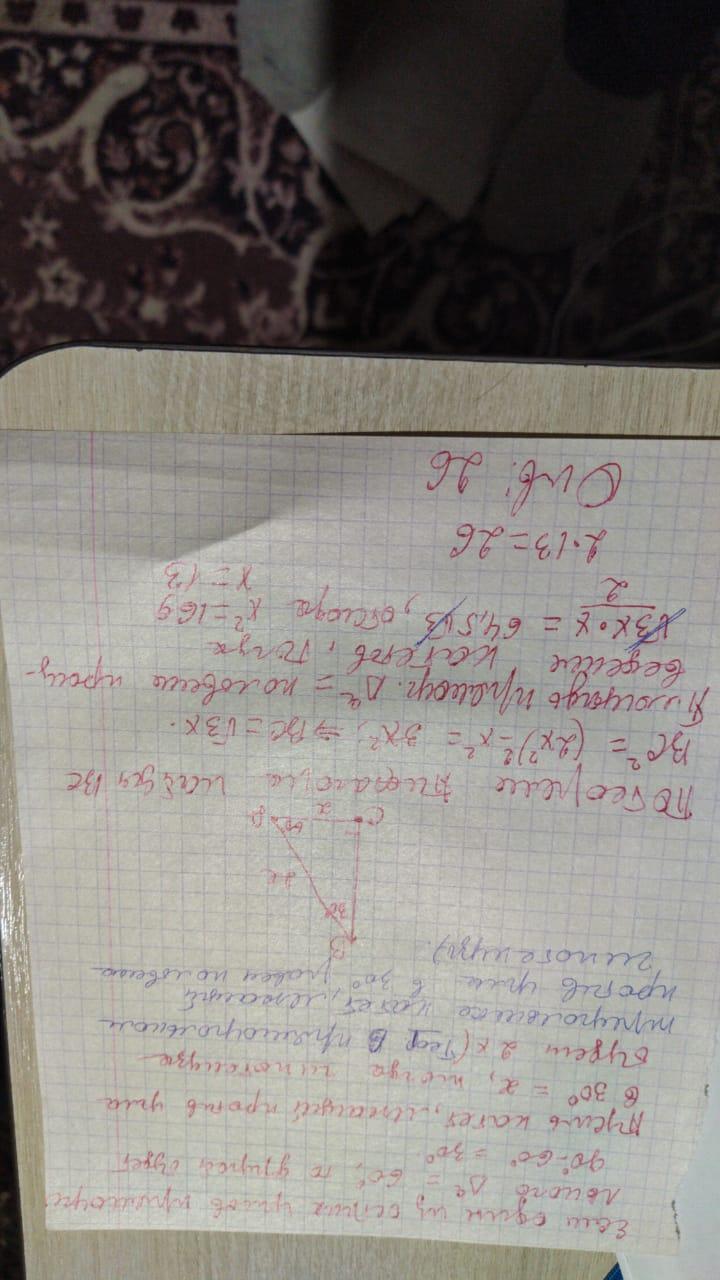 Если один из острых углов прямоуг
льного Δ^а = 60°, то другой будет
90°-60° = 30°
Пусть катет, лежащий против угла
в 30° = x, тогда гипотенуза
будет 2x (Теор. В прямоугольном
треугольнике катет, лежащий
против угла в 30° равен половине
гипотенузы).
B
30°
2x
60°
C
x
По Теореме пифагора найдем BC
BC² = (2x)²-x² = 3x², ⇒ BC = √3x.
Площадь прямоуг. Δ^а = половине произ-
ведения катетов, Тогда
√3x·x/2 = 64,5√3, откуда x²=169
x = 13
2·13 = 26
Отв: 26